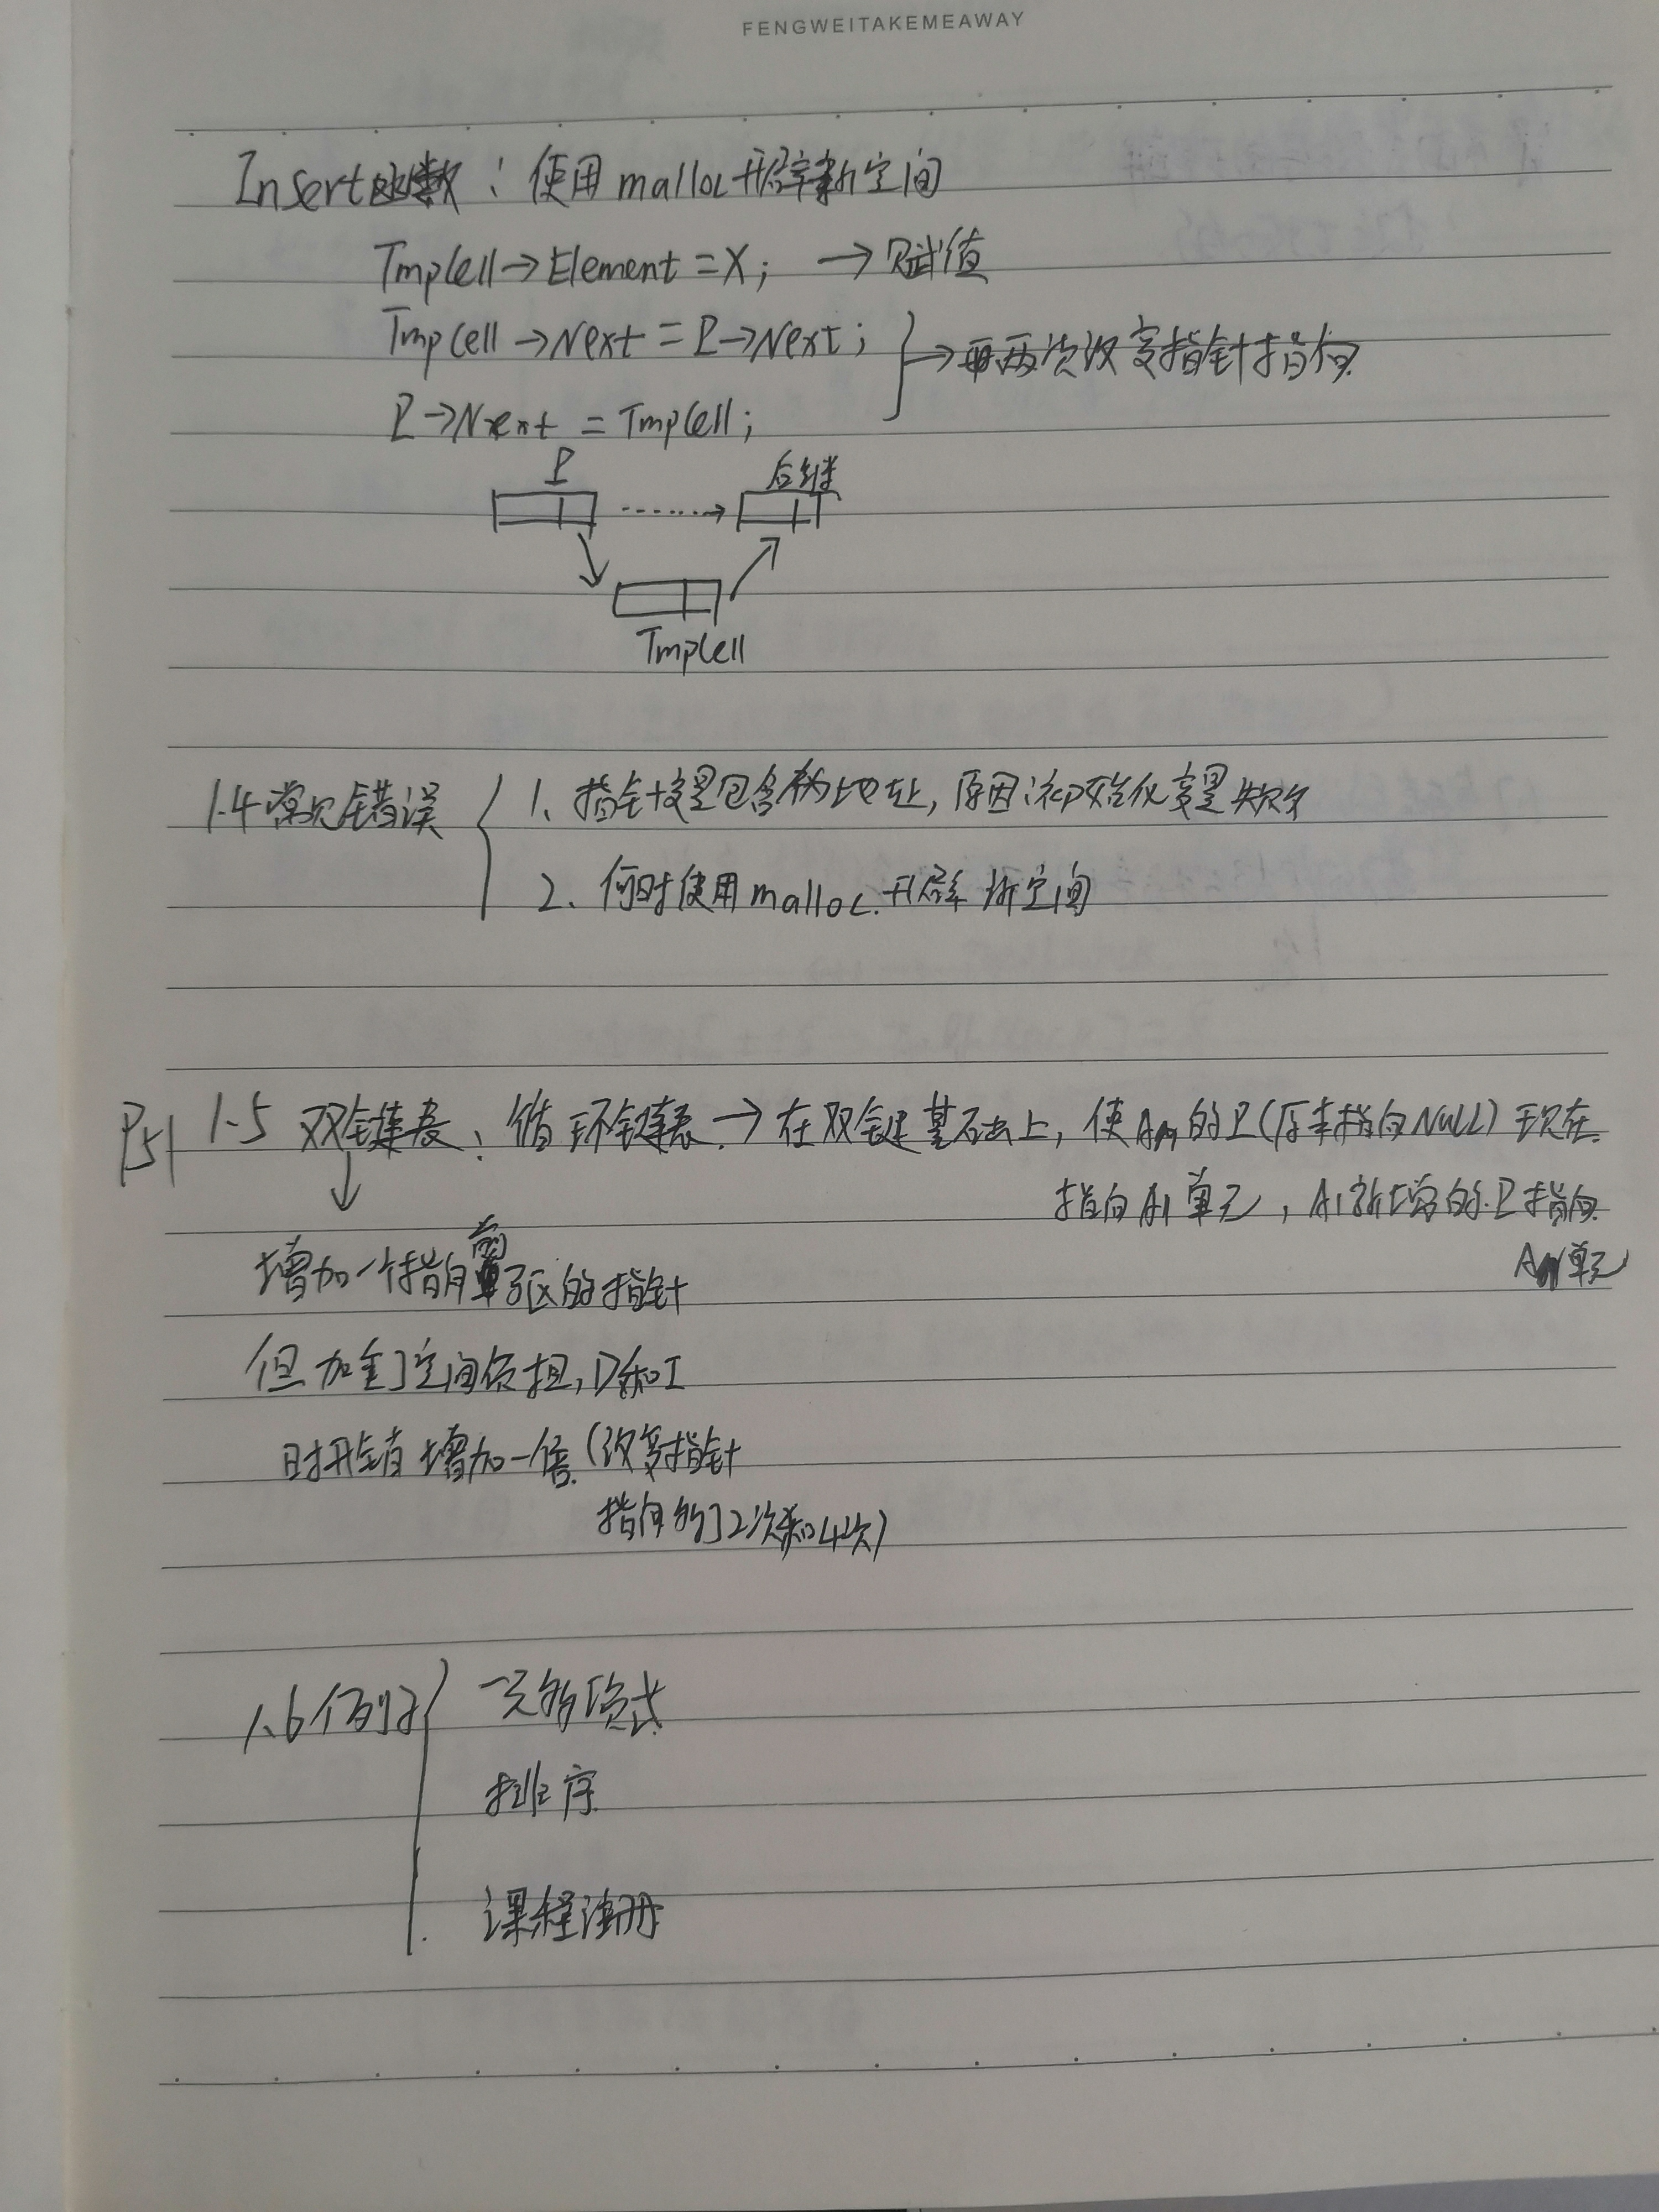 FENGWEITAKEMEAWAY
Insert函数：使用malloc开辟新空间
TmpCell→Element=X; →赋值
TmpCell→Next=P→Next;
→再两次改变指针指向
P→Next=TmpCell;
P 后继
TmpCell
1.4常见错误
1、指针变量包含伪地址，原因：初始化变量失败
2、何时使用malloc开辟新空间
P51 1.5 双链表、循环链表→在双链基础上，使An的P(原来指向NULL)现在
指向A1单元，A1新增的P指向
An单元
增加一个指向前驱的指针
但加重了空间负担，D和I
时开销增加一倍(改变指针
指向的2次和4次)
1.6例子
一元多项式
排序
课程注册